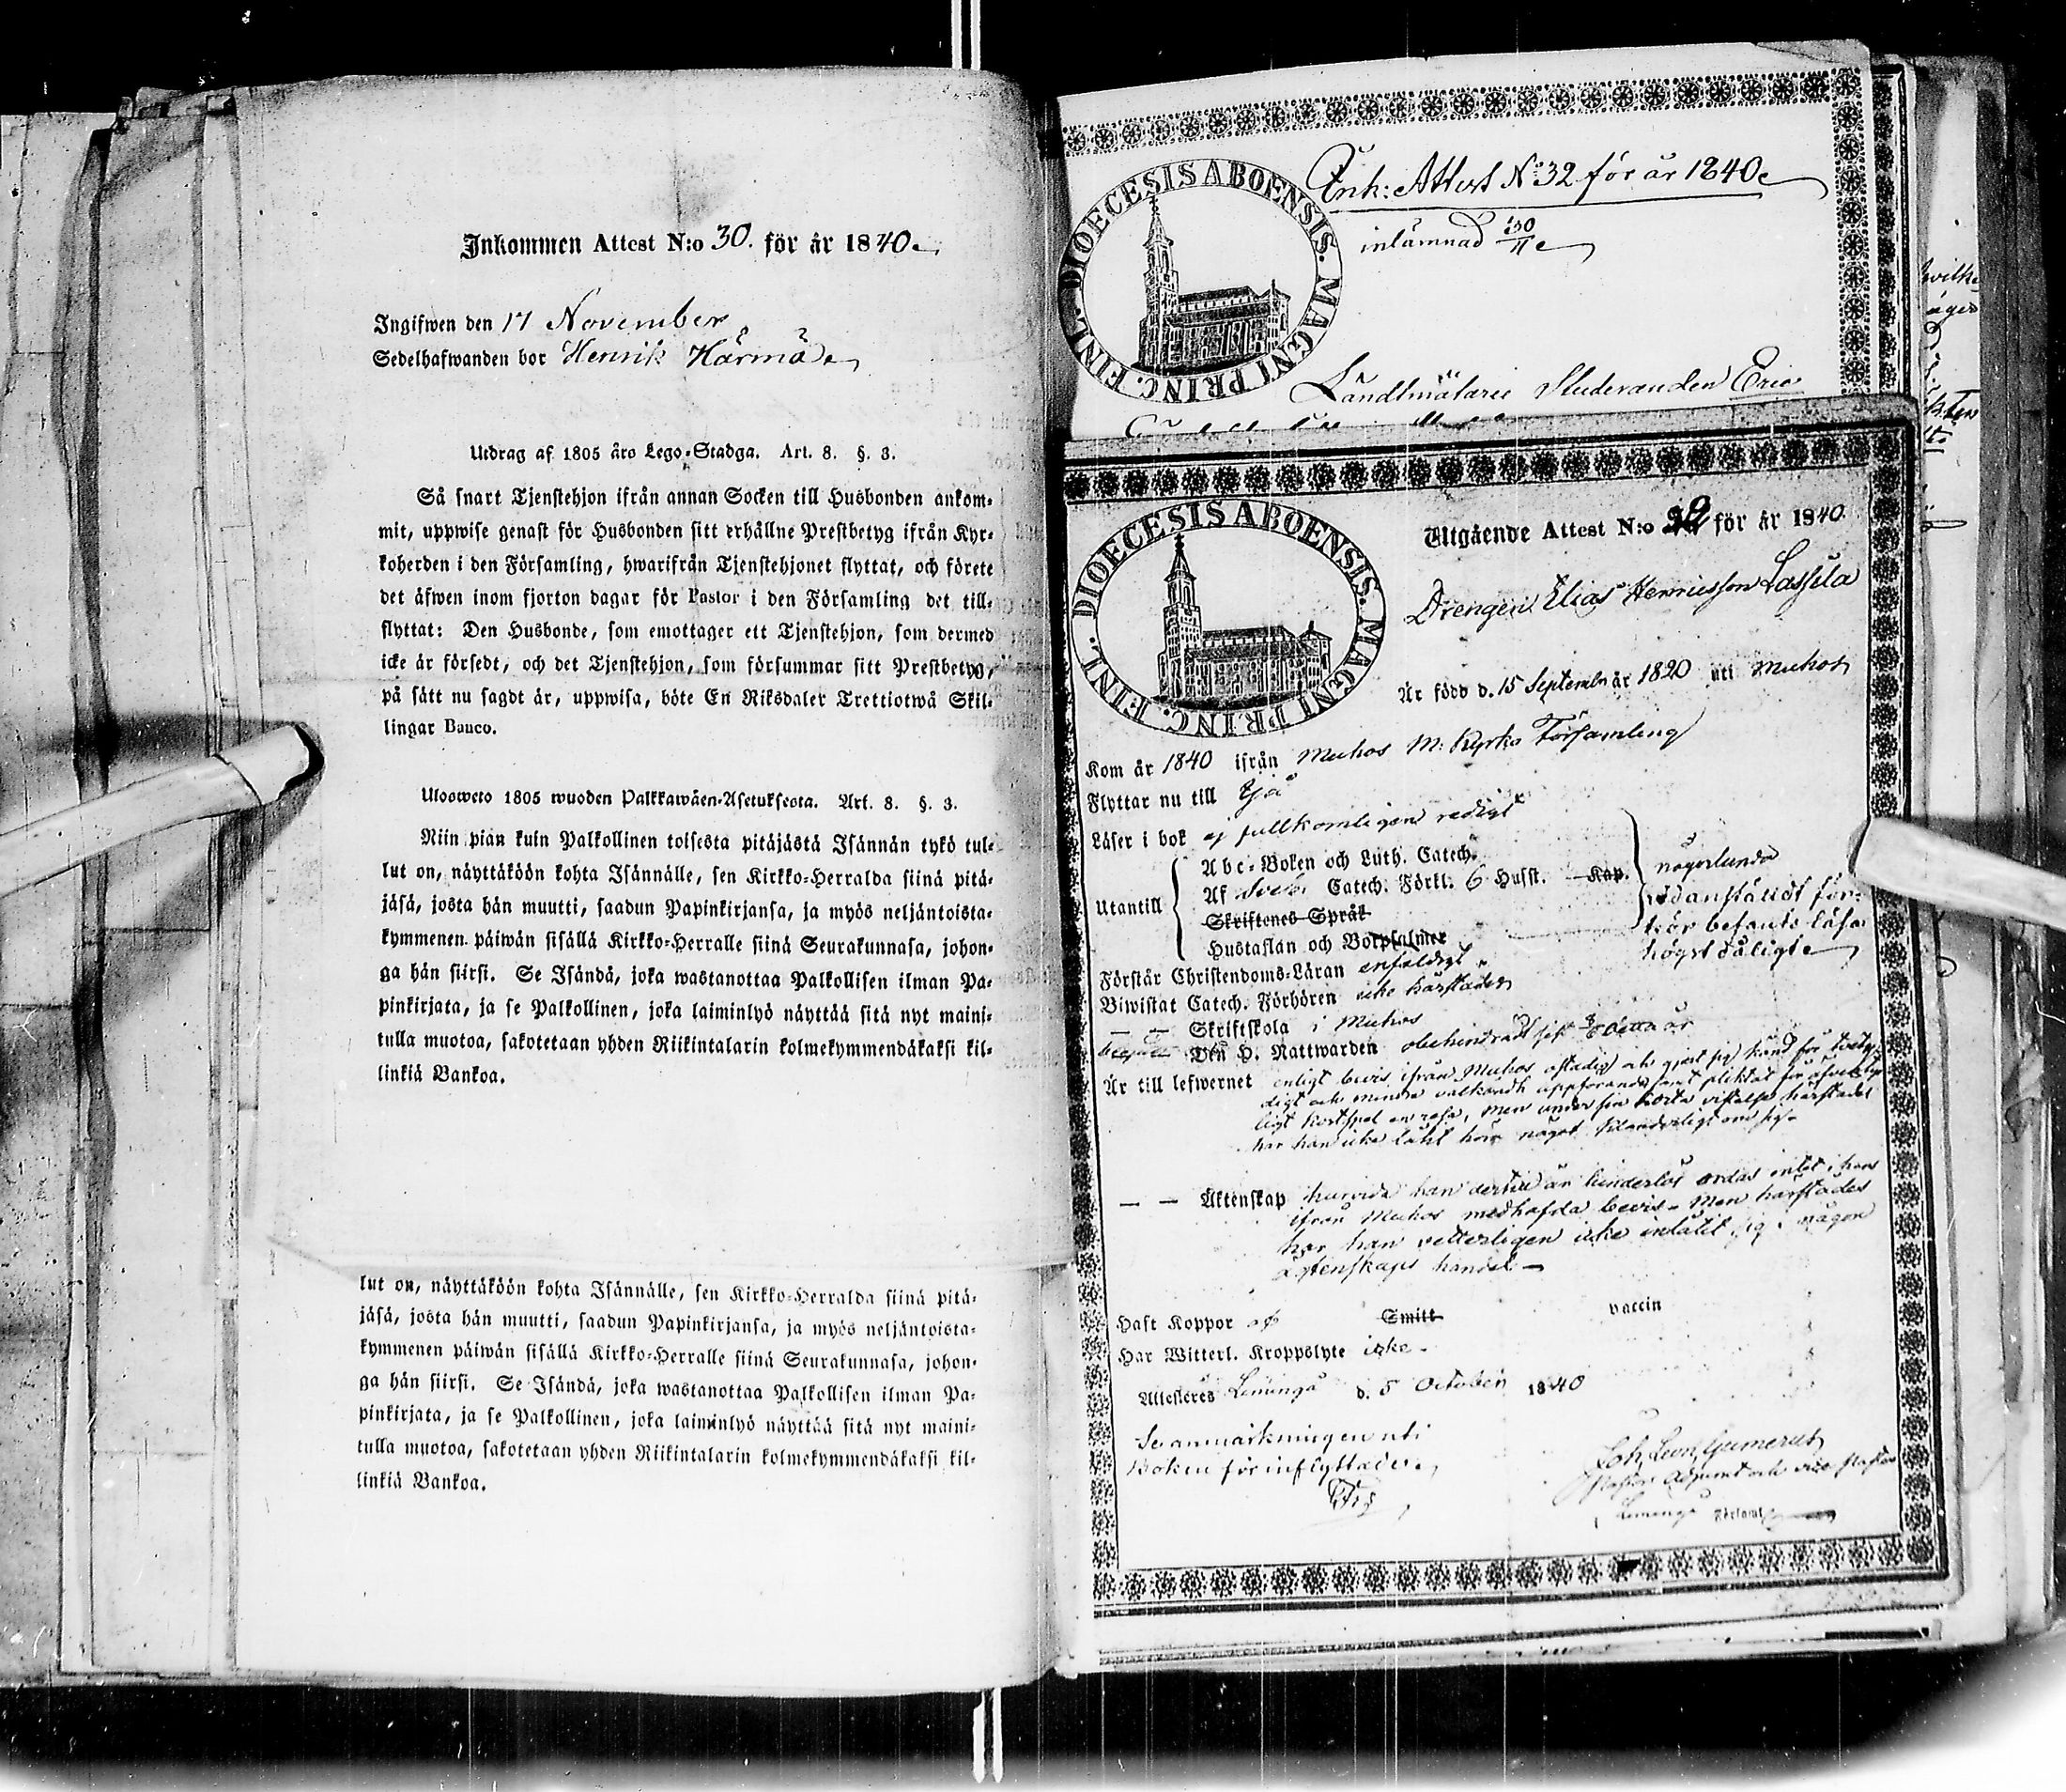 Inkommen Attest N:o 30. för år 1840.
Ingifwen den 17 November
Sedelhafwanden bor Henrik Härmä
Utdrag af 1805 års Lego-Stadga. Art. 8. §. 3.
Så snart Tjenstehjon ifrån annan Socken till Husbonden ankom-
mit, uppwise genast för Husbonden sitt erhållne Prestbetyg ifrån Kyr-
koherden i den Församling, hwarifrån Tjenstehjonet flyttat, och förete
det äfwen inom fjorton dagar för Pastor i den Församling det till-
flyttat: Den Husbonde, som emottager ett Tjenstehjon, som dermed
icke är försedt, och det Tjenstehjon, som försummar sitt Prestbetyg,
på sätt nu sagdt är, uppwisa, böte En Riksdaler Trettiotwå Skil-
lingar Banco.
Ulosweto 1805 wuoden Palkkawäen-Asetuksesta. Art. 8. §. 3.
Niin pian kuin Palkollinen toisesta pitäjästä Isännän tykö tul-
lut on, näyttäköön kohta Isännälle, sen Kirkko-Herralda siinä pitä-
jäsä, josta hän muutti, saadun Papinkirjansa, ja myös neljäntoista-
kymmenen päiwän sisällä Kirkko-Herralle siinä Seurakunnasa, johon-
ga hän siirsi. Se Isändä, joka wastanottaa Palkollisen ilman Pa-
pinkirjata, ja se Palkollinen, joka laiminlyö näyttää sitä nyt maini-
tulla muotoa, sakotetaan yhden Riikintalarin kolmekymmendäkaksi kil-
linkiä Bankoa.
lut on, näyttäköön kohta Isännälle, sen Kirkko-Herralda siinä pitä-
jäsä, josta hän muutti, saadun Papinkirjansa, ja myös neljäntoista-
kymmenen päiwän sisällä Kirkko-Herralle siinä Seurakunnasa, johon-
ga hän siirsi. Se Isändä, joka wastanottaa Palkollisen ilman Pa-
pinkirjata, ja se Palkollinen, joka laiminlyö näyttää sitä nyt maini-
tulla muotoa, sakotetaan yhden Riikintalarin kolmekymmendäkaksi kil-
linkiä Bankoa.
DIOECESIS ABOENSIS. MAGNI PRINC. FINL.
Ink: Attest No 32 för år 1840
inlämnad 30/11
Landtmäterie Studeranden Eric
DIOECESIS ABOENSIS. MAGNI PRINC. FINL.
Utgående Attest N:o för år 1840
Drengen Elias Henricsson Lassila
Är född d. 15 September år 1820 uti Muhos
Kom år 1840 ifrån Muhos M: Kyrko Församling
Flyttar nu till Ijå
Läser i bok ej fullkomligen redigt
Utantill
Abc-Boken och Luth. Catech.
Af Sveb. Catech. Förkl. 6 Hufst. Kap.
Skriftenes Språk
Hustaflan och Botpsalmer
någorlunda
vid anstäldt för-
hör befants läsa
högst dåligt
Förstår Christendoms-Läran enfaldigt
Biwistat Catech. Förhören icke härstädes
— — Skriftskola i Muhos
Den H. Nattwarden obehindradt sist detta år
Är till lefwernet enligt bevis ifrån Muhos ostadig och gjort sig känd för
digt och mindre välkändt uppförande samt pliktat för
ligt kortspel en resa, men under sin korta vistelse härstädes
har han icke låtit höra något om sig.
— — Äktenskap huruvida han dertill är hinderlös ordas intet i hans
ifrån Muhos medhafda bevis. Men härstädes
har han vetterligen icke inlåtit sig i någon
ägtenskaps handel
Haft Koppor af Smitt vaccin
Har Witterl. Kroppslyte icke.
Attesteres Limingo d. 5 October 1840
Se anmärkningen uti
Boken för inflyttade.
Joh. Leon. Gumerus
Pastors Adjunct och vice Pastor
Limingo Församl.